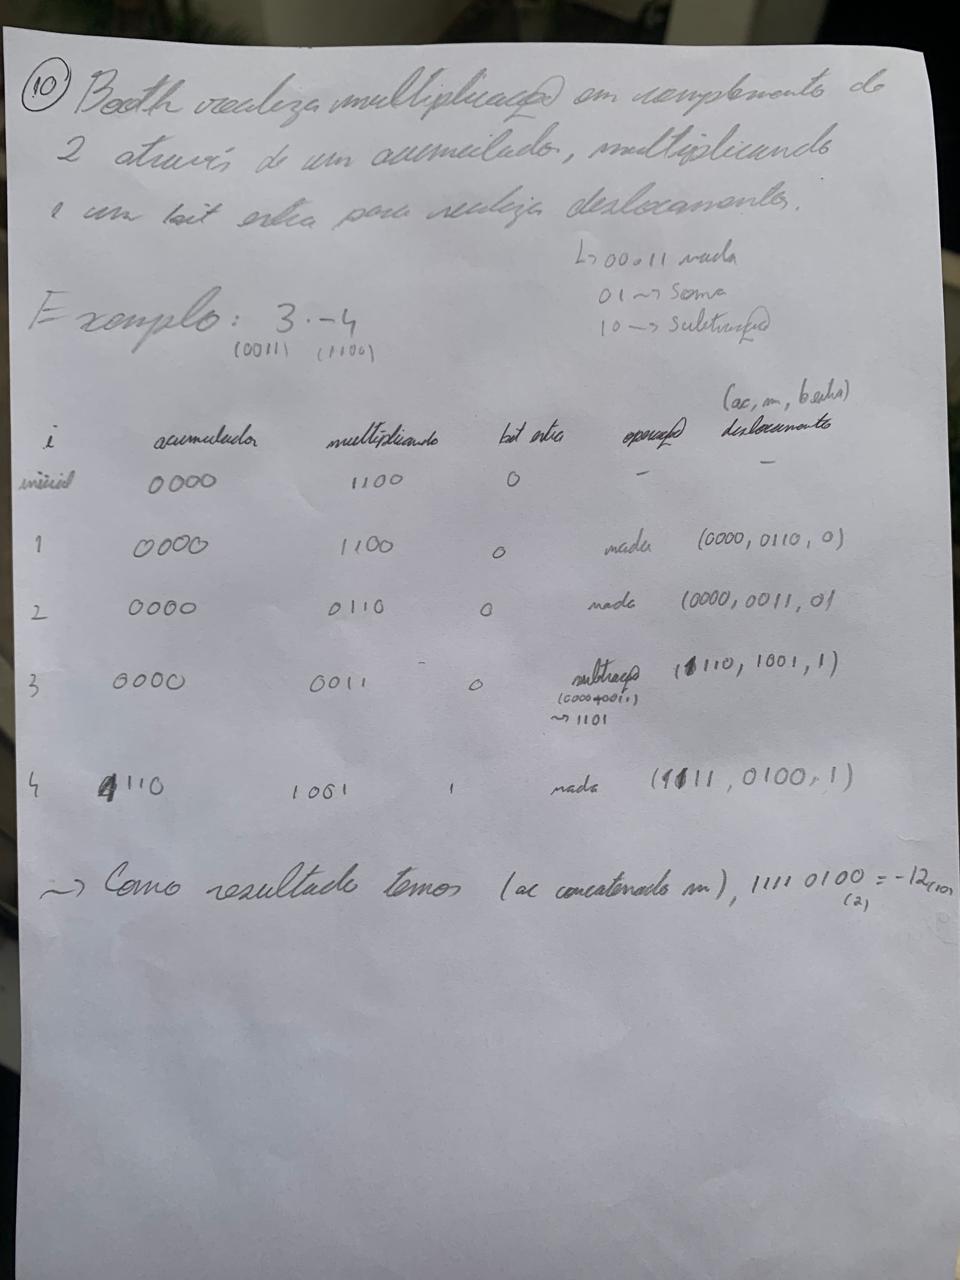 10 Booth realiza multiplicação em complemento de
2 através de um acumulador, multiplicando
e um bit extra para realiza deslocamentos.
↳ 00 ou 11 nada
01 → Soma
10 → Subtração
Exemplo: 3 . -4
(0011) (1100)
(ac, m, b extra)
i acumulador multiplicando bit extra operação deslocamento
inicial 0000 1100 0 - -
1 0000 1100 0 nada (0000, 0110, 0)
2 0000 0110 0 nada (0000, 0011, 0)
3 0000 0011 0 subtração (1110, 1001, 1)
→ 1101
4 1110 1001 1 nada (1111, 0100, 1)
→ Como resultado temos (ac concatenado m), 1111 0100 = -12(10)
(2)